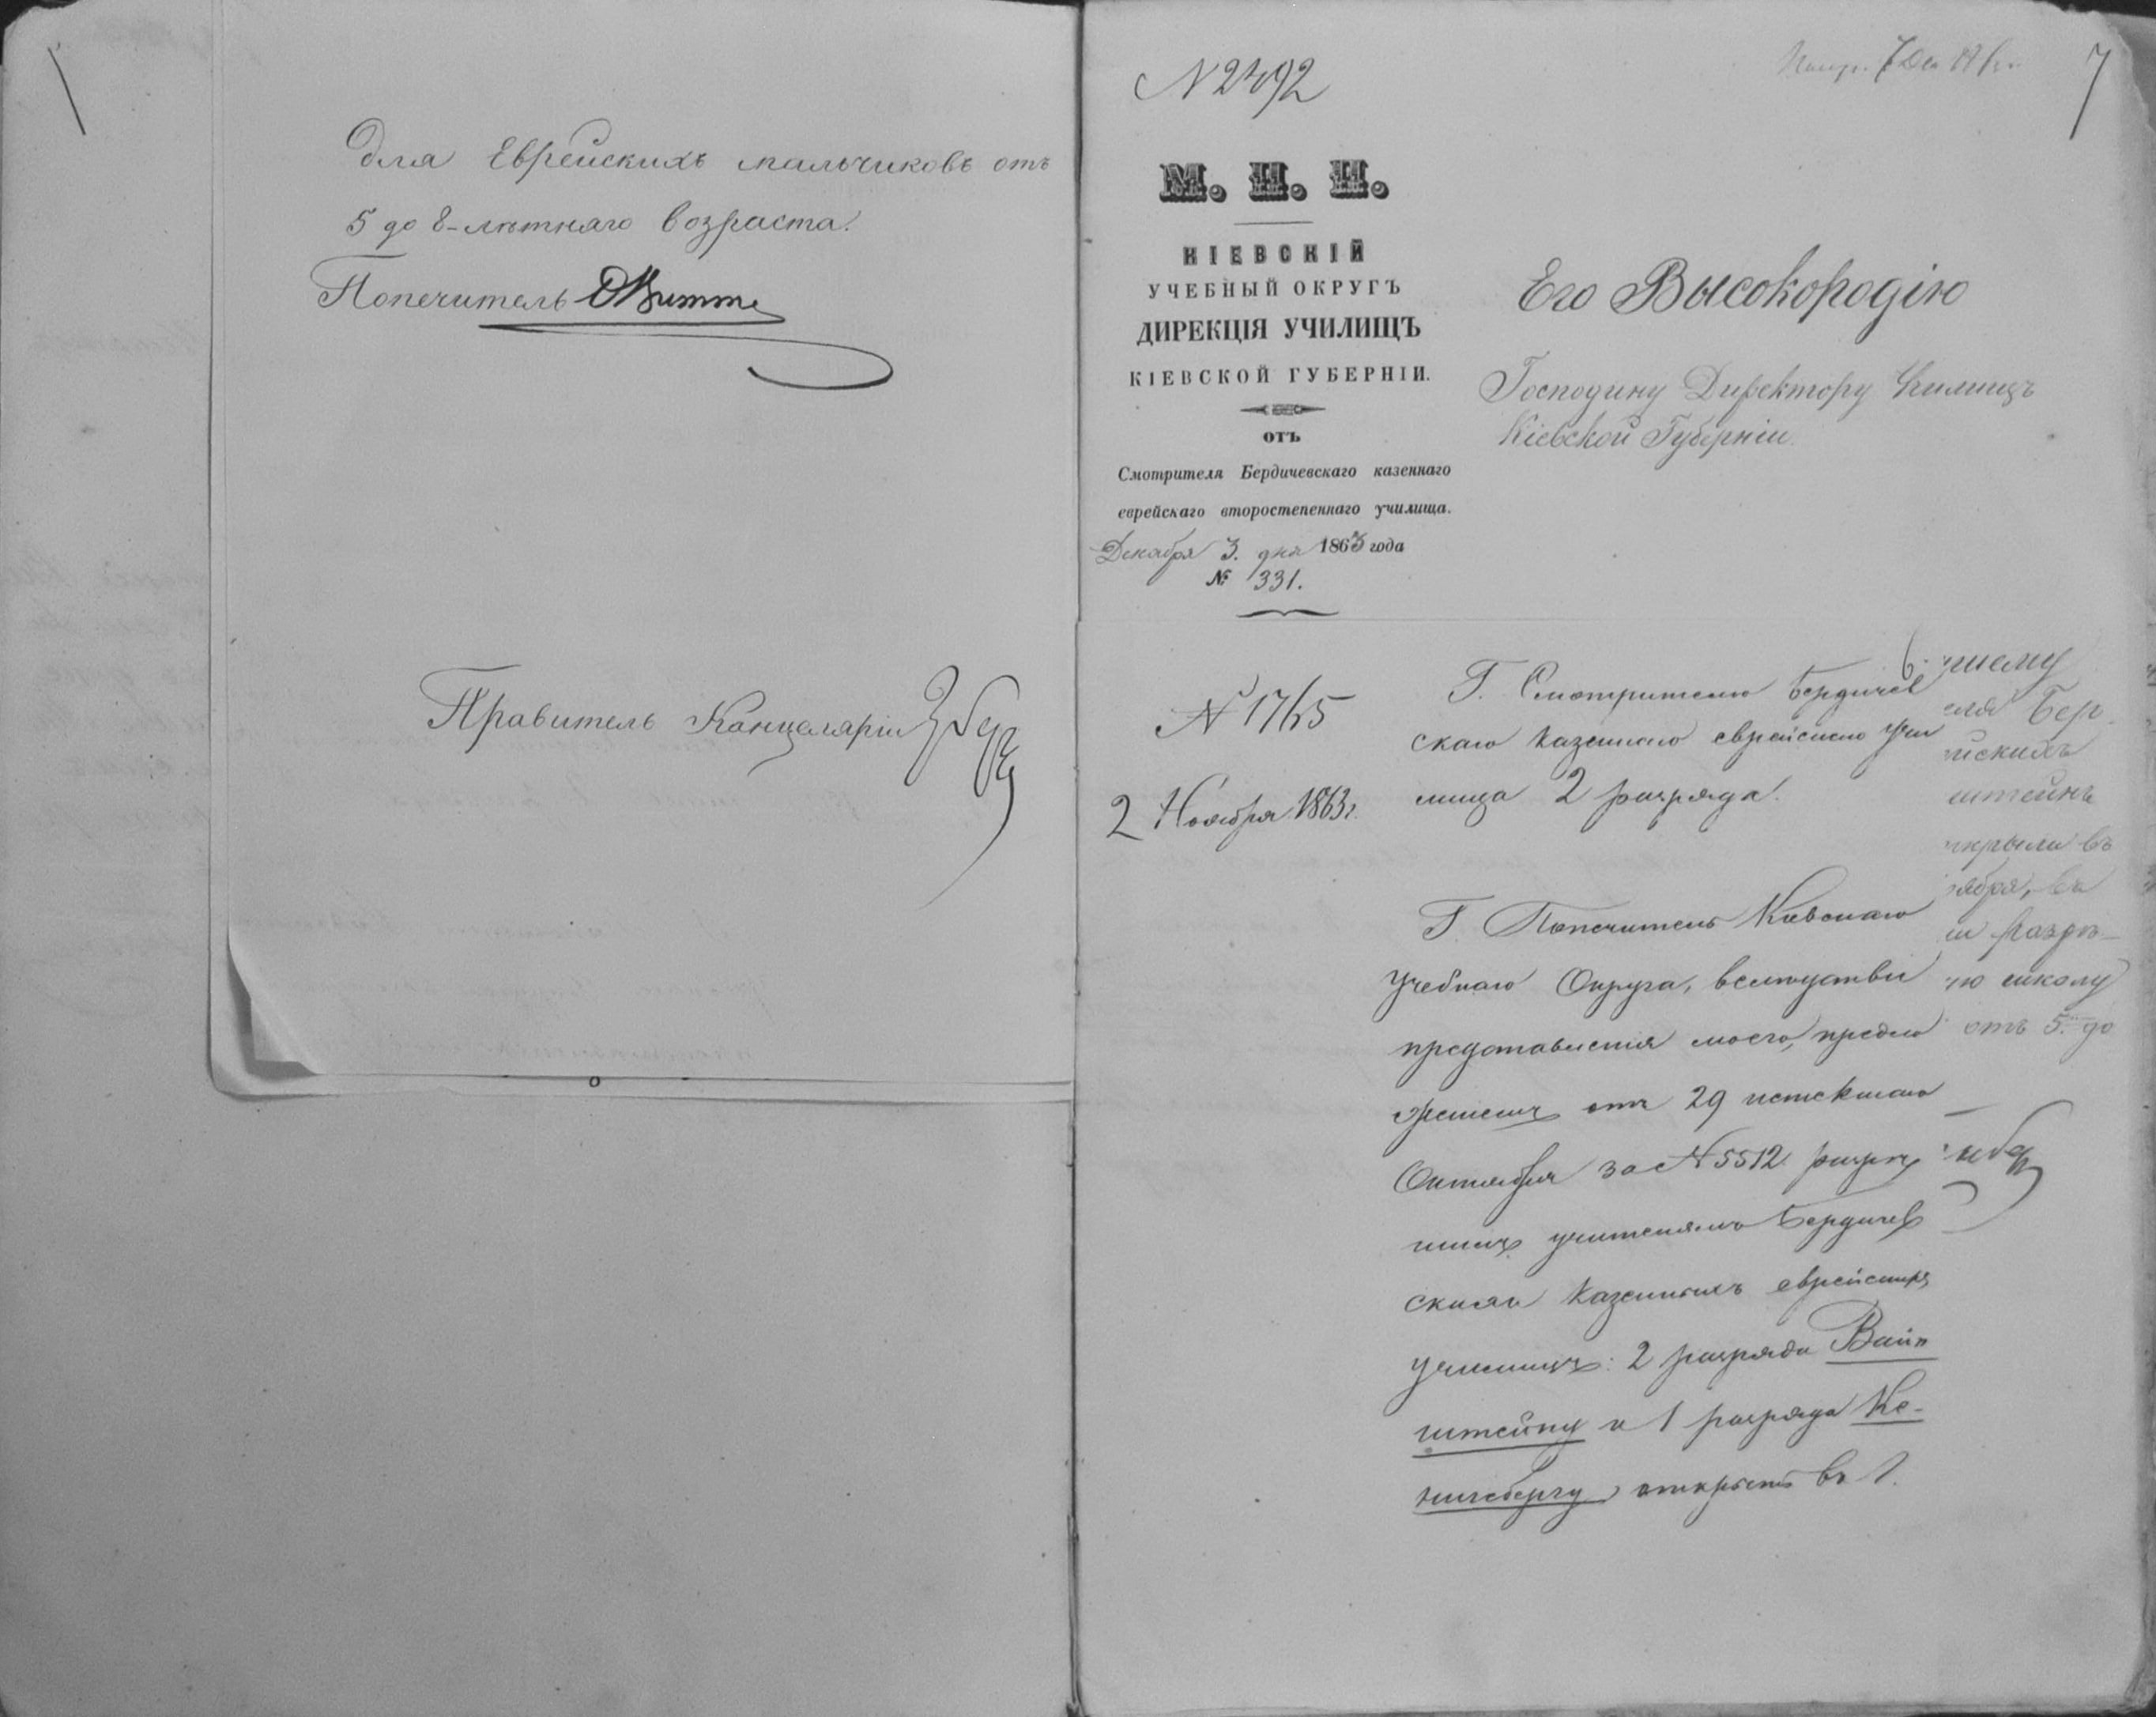 для Еврейскихъ мальчиковъ отъ
5 до 8-лѣтняго возраста.
Попечитель Витте
Правитель Канцеляріи
N 2492
7
М. Н. П.
КІЕВСКІЙ
УЧЕБНЫЙ ОКРУГЪ
ДИРЕКЦІЯ УЧИЛИЩЪ
КІЕВСКОЙ ГУБЕРНІИ.
отъ
Смотрителя Бердичевскаго казеннаго
еврейскаго второстепеннаго училища.
Декабря 3. дня 1863 года
№ 331.
Его Высокородію
Господину Директору Училищъ
Кіевской Губерніи.
N 1765
2 Ноября 1863 г.
6.
Г. Смотрителю Бердичев
скаго казеннаго еврейскаго учи
лища 2 разряда.
Г. Попечитель Кіевскаго
учебнаго Округа, вслѣдствіе
представленія моего, предло
женіемъ отъ 29 истекшаго
Октября за N 5512 разрѣ
шилъ учителямъ Бердичев
скихъ казенныхъ еврейскихъ
училищъ: 2 разряда Вайн
штейну и 1 разряда Ке-
нигсбергу открыть въ г.
шему
еля Бер
йскихъ
штейнъ
ткрыли въ
ября, въ
и разрѣ-
ую школу
отъ 5. до